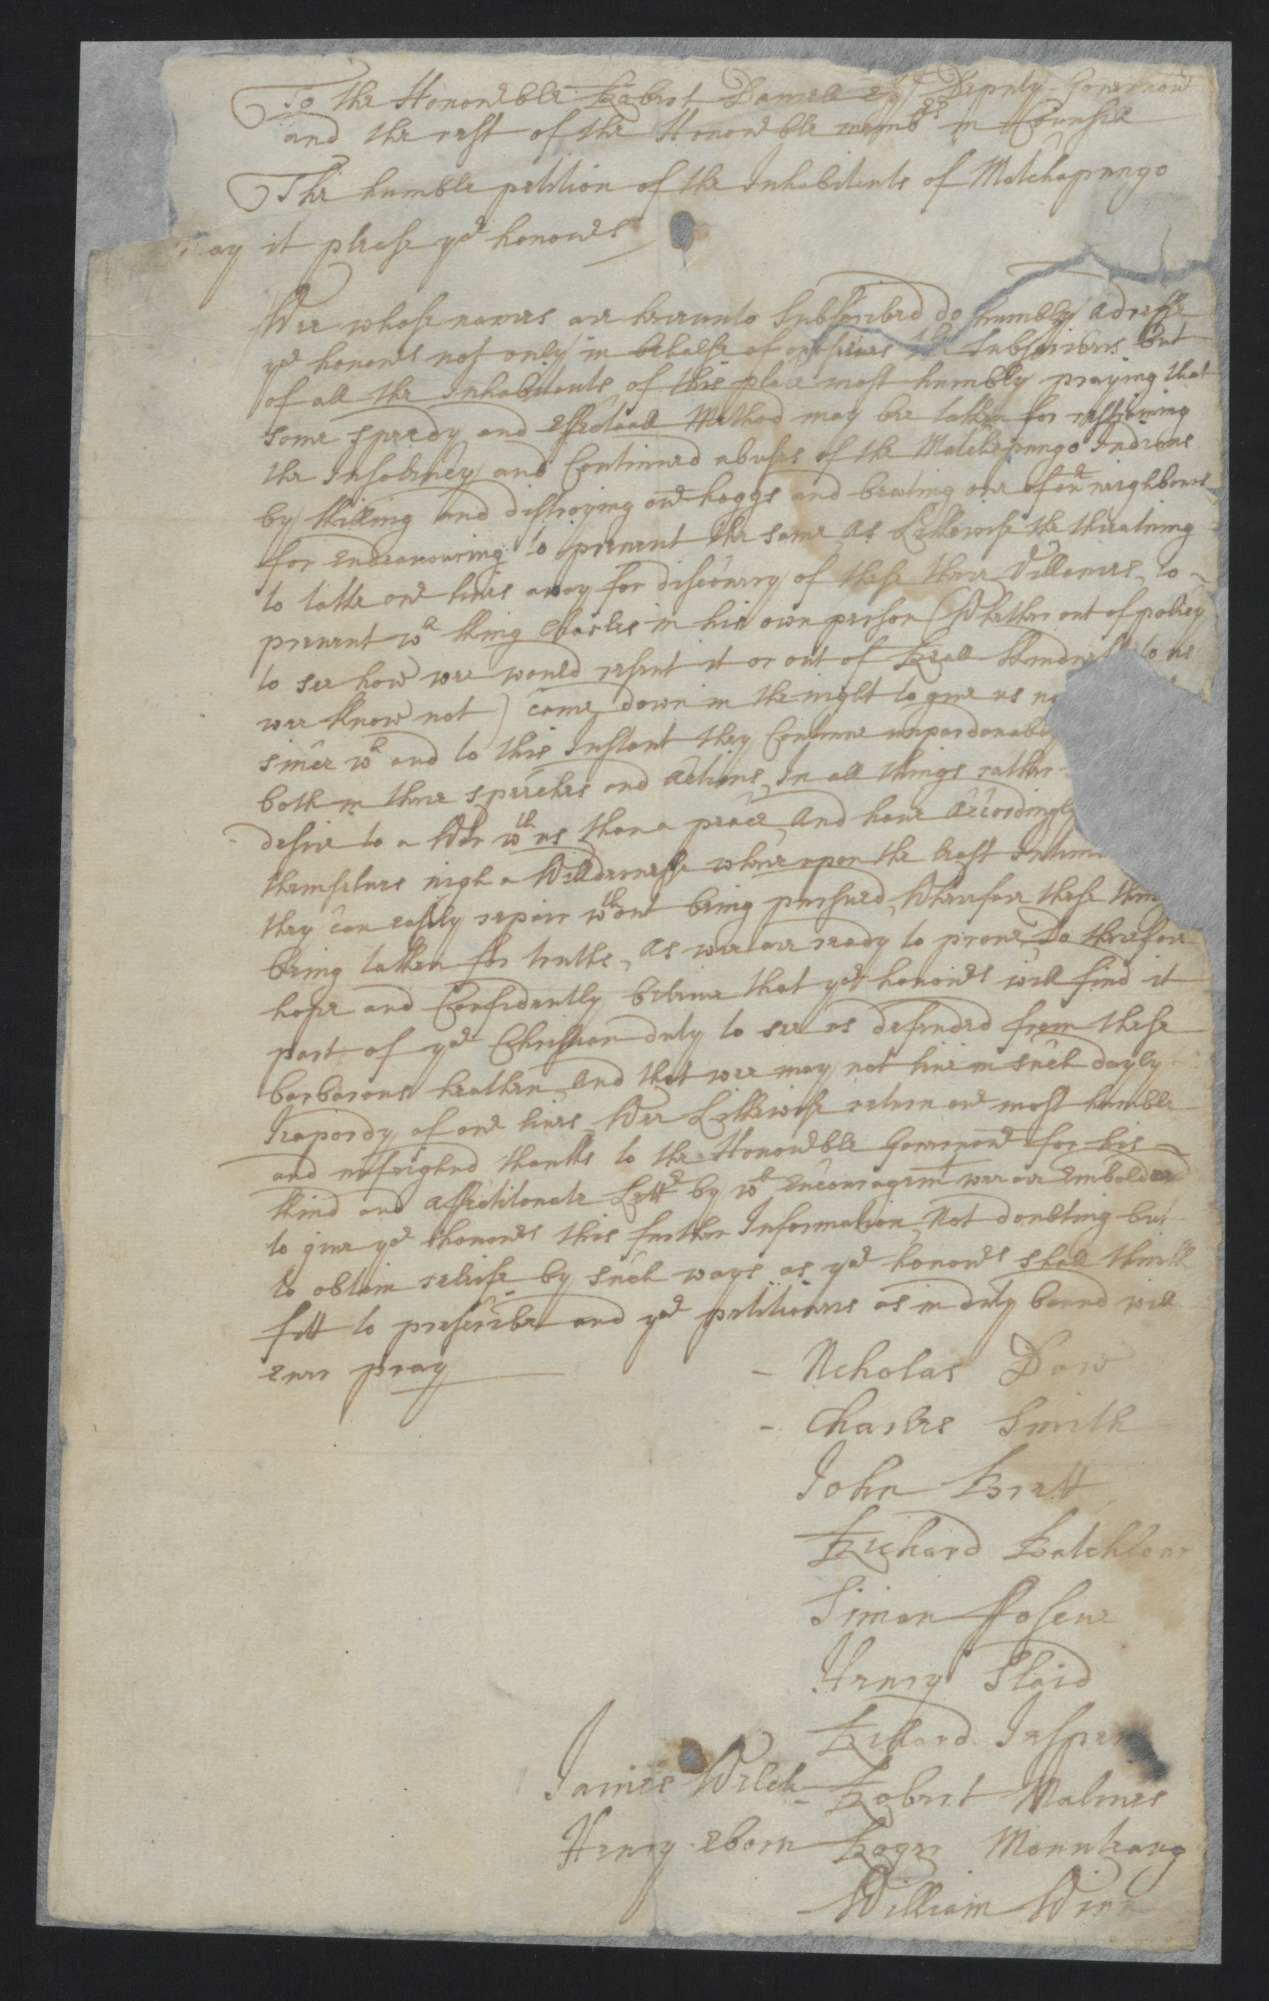 To the Honorable Robert Daniell Esqr Deputy Governour
and the rest of the Honorable membrs in Counsil
The humble petition of the Inhabitants of Matchapungo
ay it please yor honours
Wee whose names are hereunto Subscribed do humbly adresse
yor honours not only in behalfe of orselves the Subscribers but
of all the Inhabitants of this place most humbly praying that
some speedy and effectuall Method may bee taken for restraining
the Insolencey and Continued abuses of the Matchapungo Indians
by killing and distroying our hoggs and beating one of our neighbours
for endeavouring to prevent the same As Likewise the threatning
to take our lives away for discovery of these there Villanies, to
prevent wch King Charles in his own person (Whether out of policy
to see how wee would resent it or out of Reall Kindness to us
wee know not) came down in the night to give us no
since wch and to this Instant they Continue unpardonab
both in there speeches and actions, In all things rather
desire to a War wth us than a peace, And have accordingly
themselves nigh a Wildernesse where upon the least
they can easily repair wthout being pursued, Wherefore these thin
being taken for truths, as wee are ready to prove, Do therefore
hope and Confidently beleive that yor honours will find it
part of yor Christian duty to see us defended from these
barbarous heathen and that wee may not live in such dayly
Jeapordy of our lives, Wee Likewise return our most humble
and unfeighned thanks to the Honourble Governour for his
kind and affectitonate Lettr by wch encouragemt wee are Emboldned
to give yor honours this further Information Not doubting but
to obtain releife by such ways as yor honours shall think
fitt to prescribe and yor petitionrs as in duty bound will
ever pray
Nicholas Daw
Charles Smith
John Brett
Richard Batchloer
Simon Foscue
Henry Slaid
Richard Jasper
James Welch Robert Malines
Henry Eborn Roger Mountcang
William Win